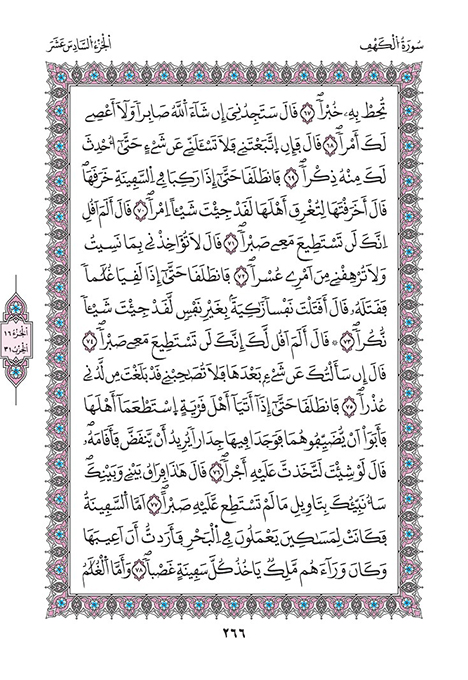 سُورَةُ الْكَهْفِ
الْجُزْءُ السَّادِسَ عَشَرَ
تُحِطْ بِهِۦ خُبْراٗۖ ٦٧ قَالَ سَتَجِدُنِيَ إِن شَآءَ اَللَّهُ صَابِراٗ وَلَآ أَعْصِے
لَكَ أَمْراٗۖ ٦٨ قَالَ فَإِنِ اِتَّبَعْتَنِے فَلَا تَسْـَٔلَنِّے عَن شَےْءٍ حَتَّىٰٓ أُحْدِثَ
لَكَ مِنْهُ ذِكْراٗۖ ٦٩ فَانطَلَقَا حَتَّىٰٓ إِذَا رَكِبَا فِے اِلسَّفِينَةِ خَرَقَهَاۖ
قَالَ أَخَرَقْتَهَا لِتُغْرِقَ أَهْلَهَا لَقَدْ جِئْتَ شَيْـٔاً اِمْراٗۖ ٧٠ قَالَ أَلَمَ اَقُلِ
اِنَّكَ لَن تَسْتَطِيعَ مَعِے صَبْراٗۖ ٧١ قَالَ لَا تُؤَاخِذْنِے بِمَا نَسِيتُ
وَلَا تُرْهِقْنِے مِنَ اَمْرِے عُسْراٗۖ ٧٢ فَانطَلَقَا حَتَّىٰٓ إِذَا لَقِيَا غُلَٰماٗ
فَقَتَلَهُۥ قَالَ أَقَتَلْتَ نَفْساٗ زَٰكِيَةَۢ بِغَيْرِ نَفْسٖ لَّقَدْ جِئْتَ شَيْـٔاٗ
نُّكُراٗۖ ٧٣ ۞ قَالَ أَلَمَ اَقُل لَّكَ إِنَّكَ لَن تَسْتَطِيعَ مَعِے صَبْراٗۖ ٧٤
قَالَ إِن سَأَلْتُكَ عَن شَےْءِۢ بَعْدَهَا فَلَا تُصَٰحِبْنِے قَدْ بَلَغْتَ مِن لَّدُنِے
عُذْراٗۖ ٧٥ فَانطَلَقَا حَتَّىٰٓ إِذَآ أَتَيَآ أَهْلَ قَرْيَةٍ اِسْتَطْعَمَآ أَهْلَهَا
فَأَبَوَاْ اَنْ يُّضَيِّفُوهُمَا فَوَجَدَا فِيهَا جِدَاراٗ يُرِيدُ أَنْ يَّنقَضَّ فَأَقَامَهُۥۖ
قَالَ لَوْ شِئْتَ لَتَّخَذتَّ عَلَيْهِ أَجْراٗۖ ٧٦ قَالَ هَٰذَا فِرَاقُ بَيْنِے وَبَيْنِكَۖ
سَأُنَبِّئُكَ بِتَأْوِيلِ مَا لَمْ تَسْتَطِع عَّلَيْهِ صَبْراٗۖ ٧٧ اَمَّا اَلسَّفِينَةُ
فَكَانَتْ لِمَسَٰكِينَ يَعْمَلُونَ فِے اِلْبَحْرِ فَأَرَدتُّ أَنَ اَعِيبَهَا
وَكَانَ وَرَآءَهُم مَّلِكٞ يَأْخُذُ كُلَّ سَفِينَةٍ غَصْباٗۖ ٧٨ وَأَمَّا اَلْغُلَٰمُ
الجزء ١٦
الحزب ٣١
٢٦٦